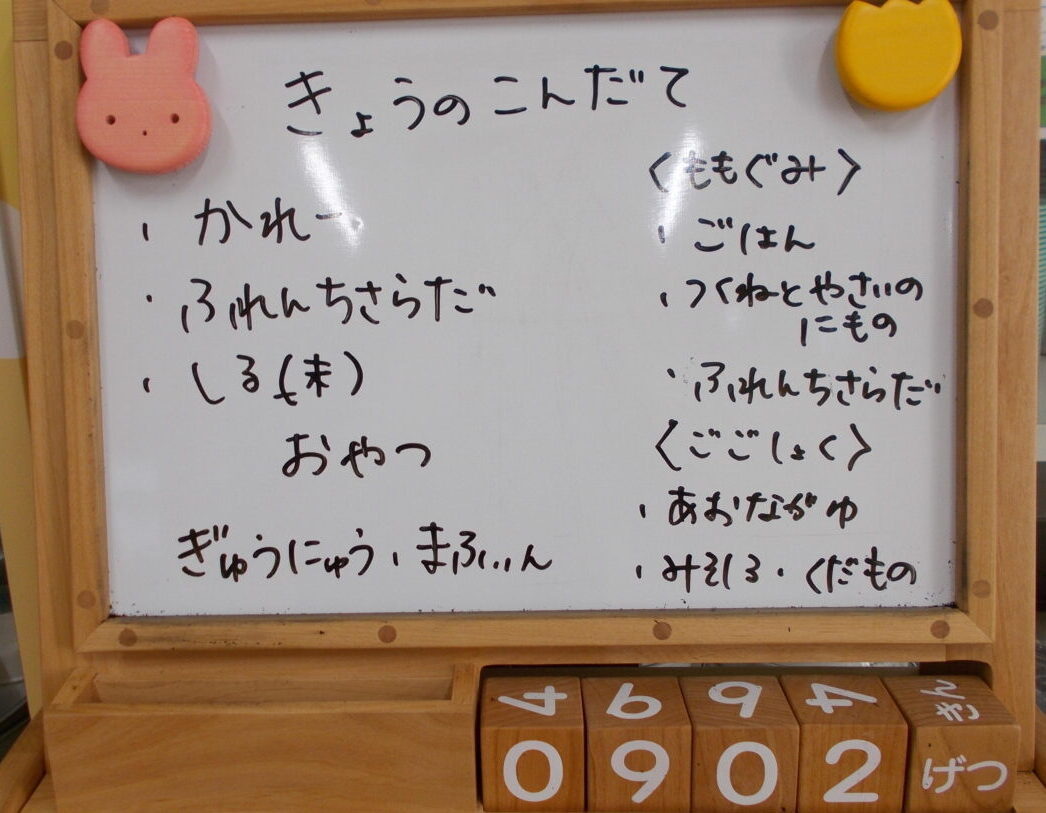 きょうのこんだて
・かれー
・ふれんちさらだ
・しる(末)
おやつ
ぎゅうにゅう、まふぃん
〈ももぐみ〉
・ごはん
・つくねとやさいの
にもの
・ふれんちさらだ
〈ごごしょく〉
・あおながゆ
・みそしる・くだもの
4 6 6 4 きん
0 9 0 2 げつ